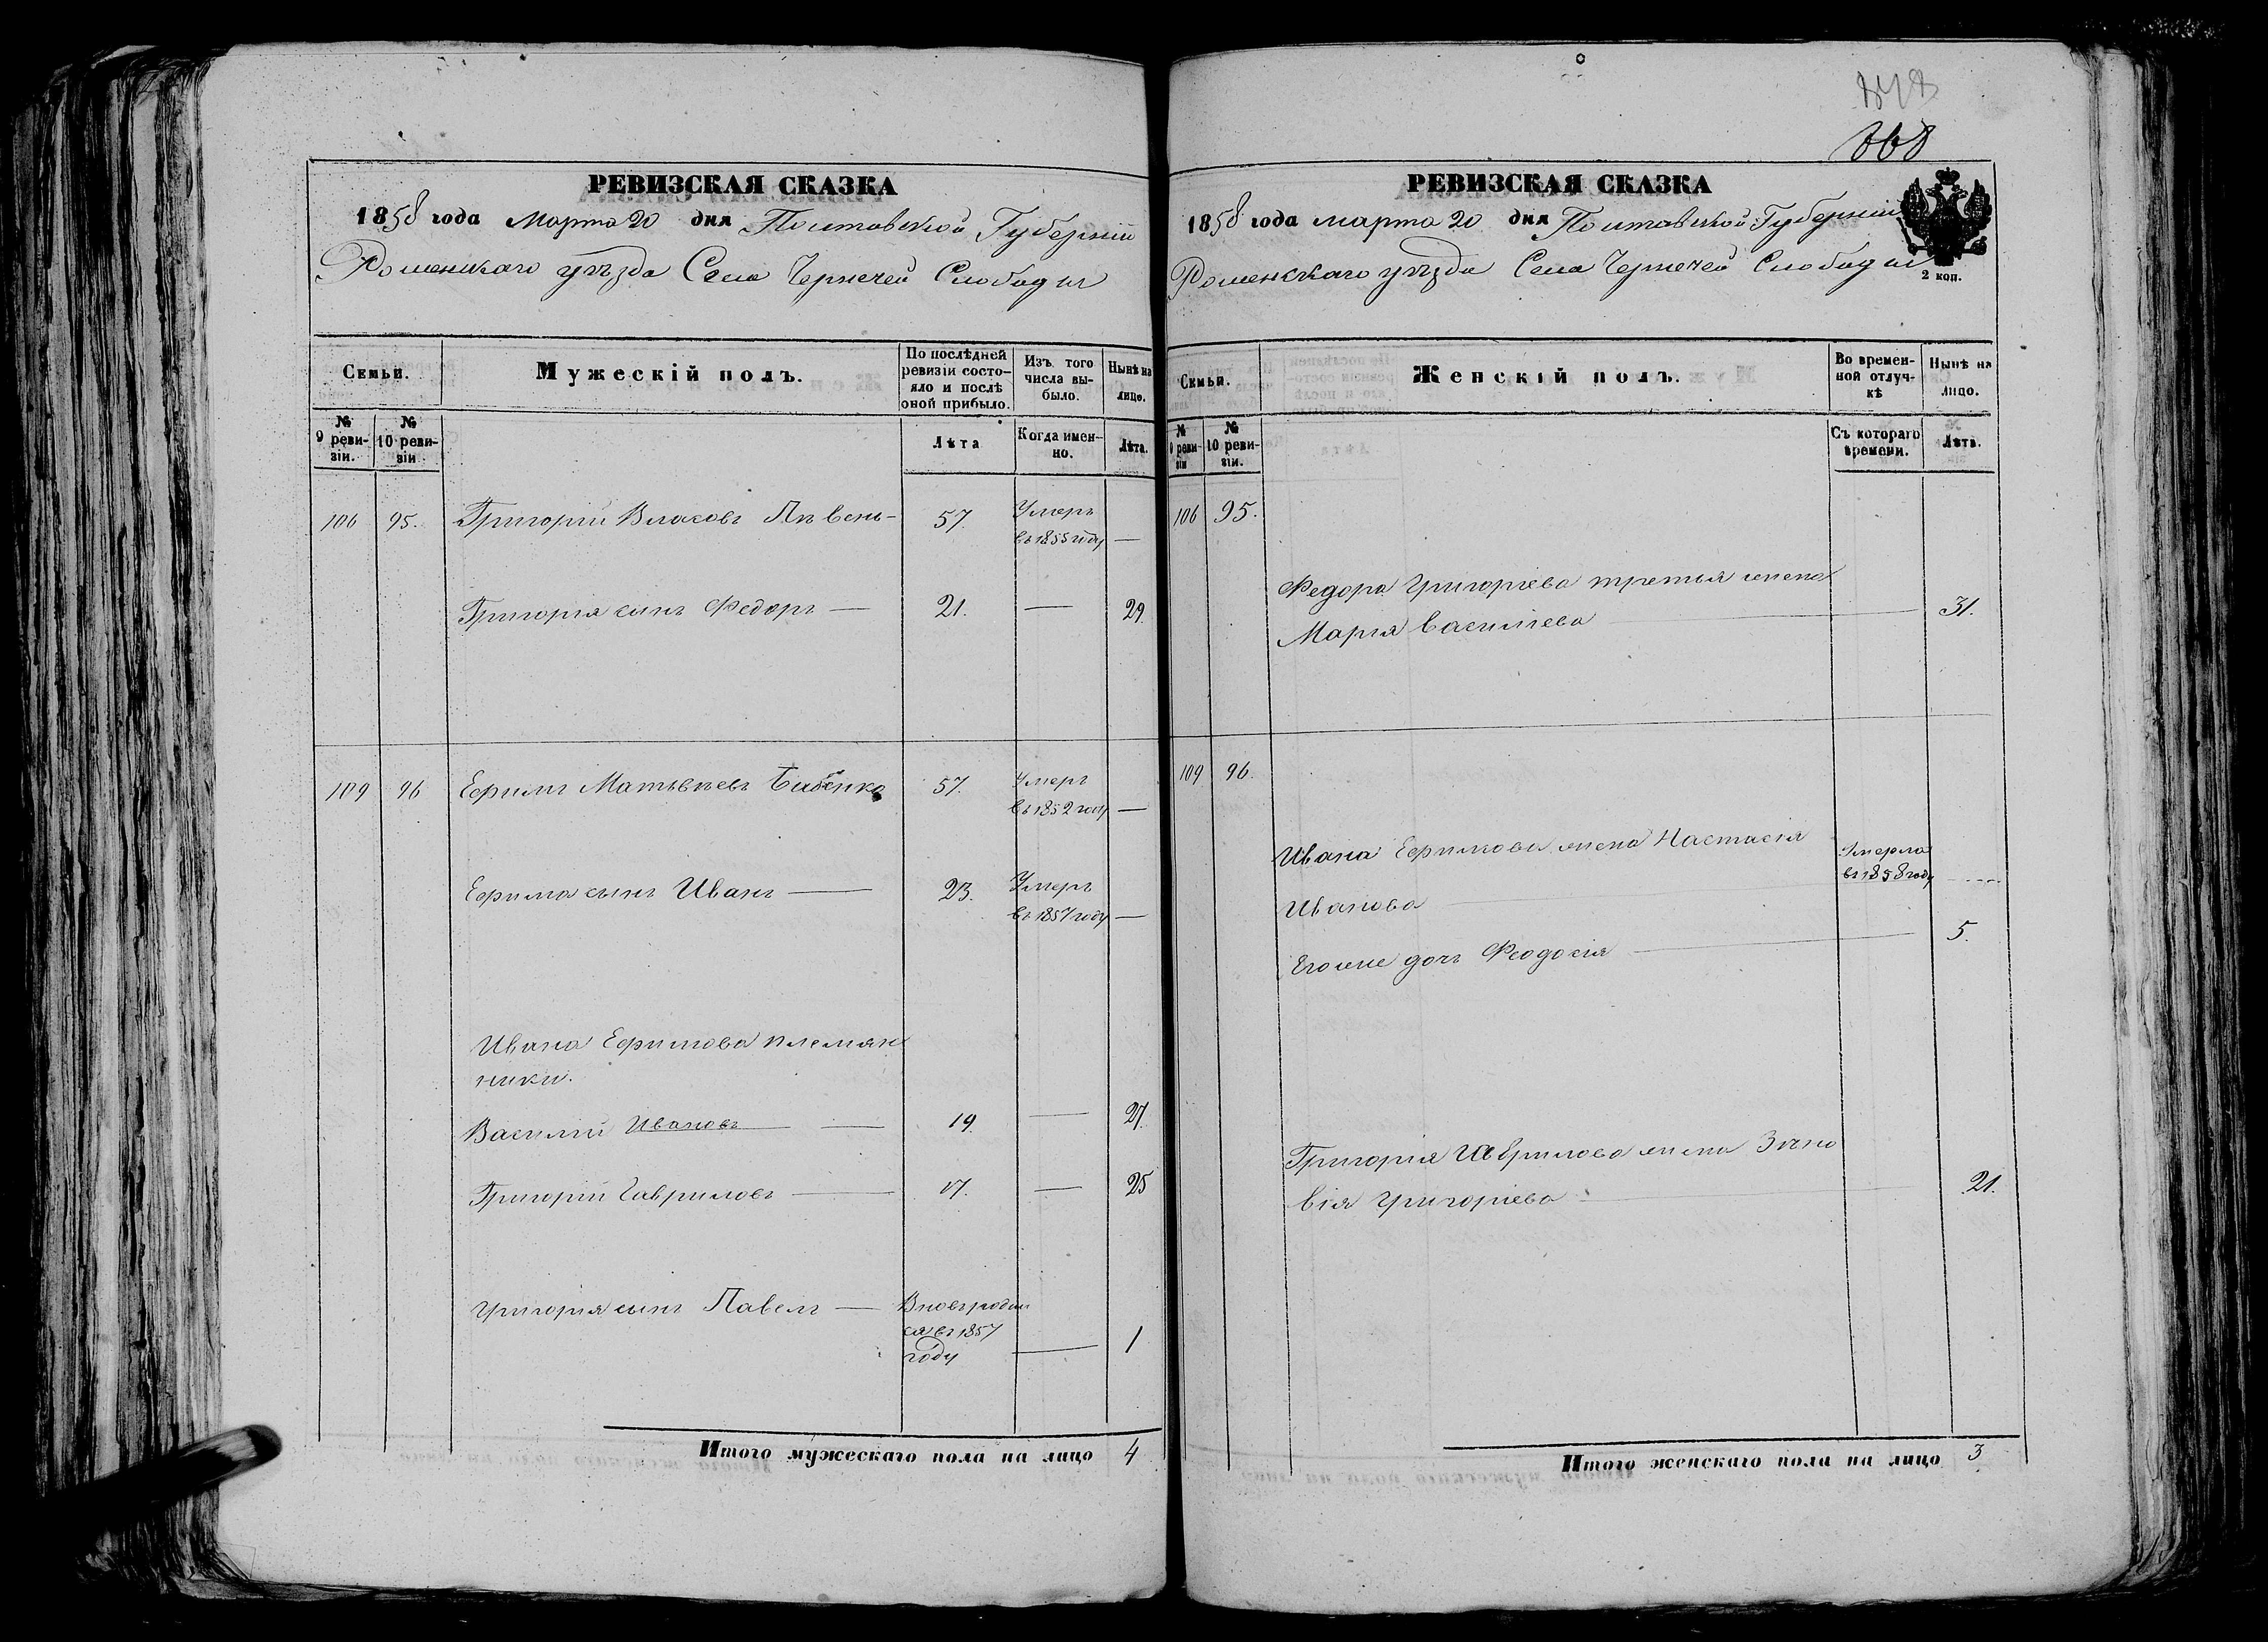 368
РЕВИЗСКАЯ СКАЗКА
1858 года Марта 20 дня Полтавской Губерніи
Роменскаго уѣзда Села Чернечей Слободы
Семьи.
Мужескій полъ.
По послѣдней ревизіи состояло и послѣ оной прибыло.
Изъ того числа выбыло.
Нынѣ на лицо.
№ 9 ревизіи.
№ 10 ревизіи
Лѣта
Когда именно.
Лѣта.
106 95. Григорій Власовъ Пѣвень 57. Умеръ
въ 1855 году —
Григорія сынъ Федоръ — 21. — 29.
109 96 Ефимъ Матвѣевъ 57. Умеръ
въ 1852 году —
Ефима сынъ Иванъ — 23. Умеръ
въ 1857 году —
Ивана Ефимова племян
ники.
Василій Ивановъ — 19. — 27.
Григорій Гавриловъ — 17. — 25
Григорія сынъ Павелъ — Вновь родил
ся въ 1857
году — 1
Итого мужескаго пола на лицо 4
РЕВИЗСКАЯ СКАЗКА
1858 года марта 20 дня Полтавской Губерніи
Роменскаго уѣзда Села Чернечей Слободы
2 коп.
Семьи.
Женскій полъ.
Во временной отлучкѣ
Нынѣ на лицо.
№ 9 ревизіи
№ 10 ревизіи.
Съ котораго времени.
Лѣта.
106 95.
Федора Григоріева третья жена
Марія Василіева — 31.
109 96.
Ивана Ефимова жена Настасія Умерла
въ 1858 году
Иванова —
Его же дочь Феодосія — 5.
Григорія Гаврилова жена Зѣно
вія Григоріева — 21.
Итого женскаго пола на лицо 3